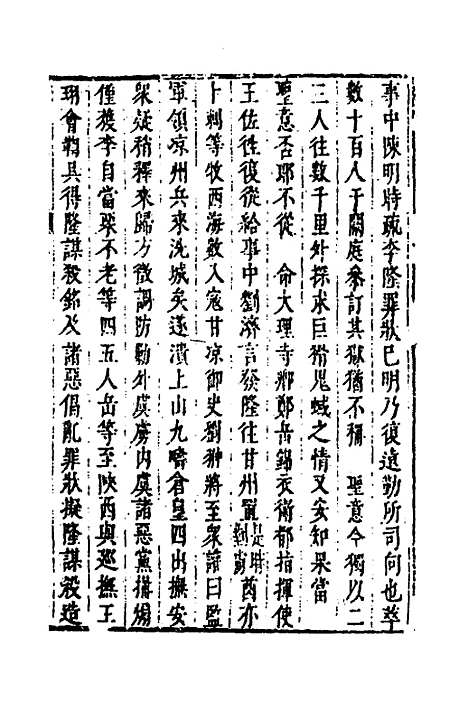 事中陳明時疏李隆罪狀已明乃復遠勤所司何也萃
數十百人于闕庭叅訂其獄猶不稱　聖意今獨以二
三人往數千里外探求巨猾鬼蜮之情又安知果當
聖意否耶不從　命大理寺卿鄭岳錦衣衛郁指揮使
王佐徃復從給事中劉濟言發隆往甘州鞫是時酋亦
卜剌等牧西海數入寇甘凉御史劉翀將至衆譌曰監
軍領凉州兵來洗城矣遂潰上山九疇倉皇四出撫安
衆疑稍釋來歸方徵調防勦外虞虜內虞諸惡黨搆煽
僅獲李自當柒不老等四五人岳等至陝西與巡撫王
珝會鞫具得隆謀殺銘及諸惡倡亂罪狀擬隆謀殺造